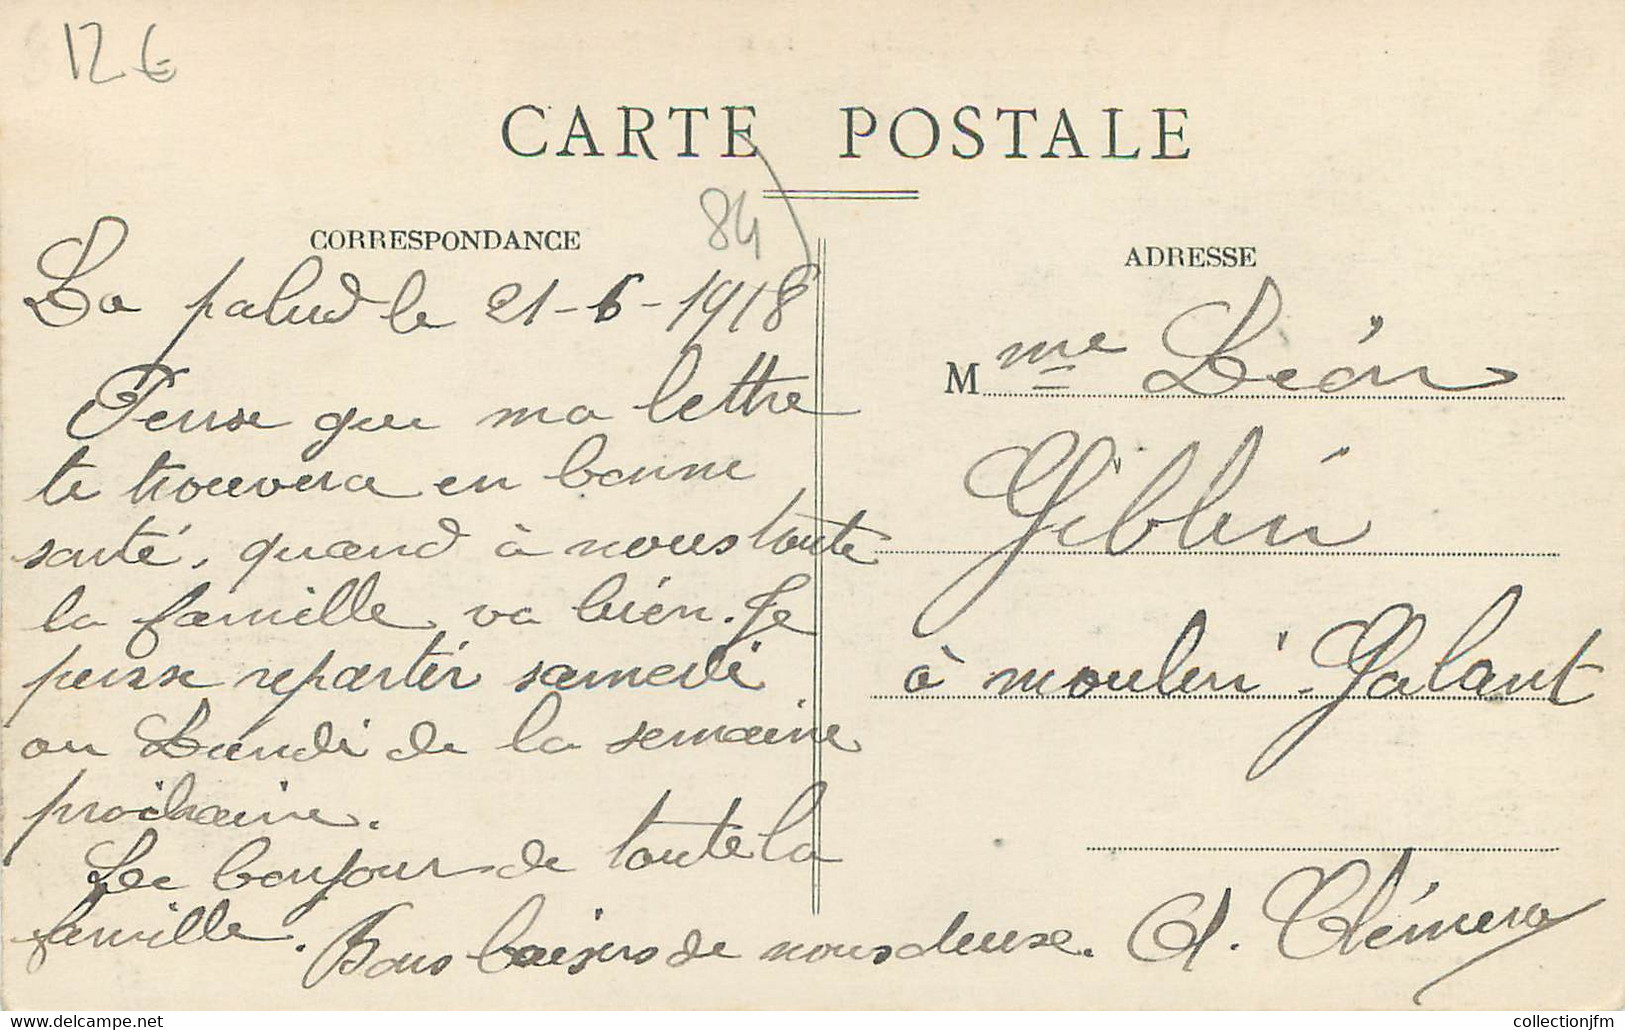 12 €
CARTE POSTALE
84
CORRESPONDANCE
La palud le 21-6-1918
Pense que ma lettre
te trouvera en bonne
santé, quand à nous toute
la famille va bien. Je
pense repartir samedi
ou Lundi de la semaine
prochaine.
Le bonjour de toute la
famille.
Bons baisers de nous deuse.
ADRESSE
Mme Léon
Giblin
à moulin-Galant
A. Clémera
collectionjfm